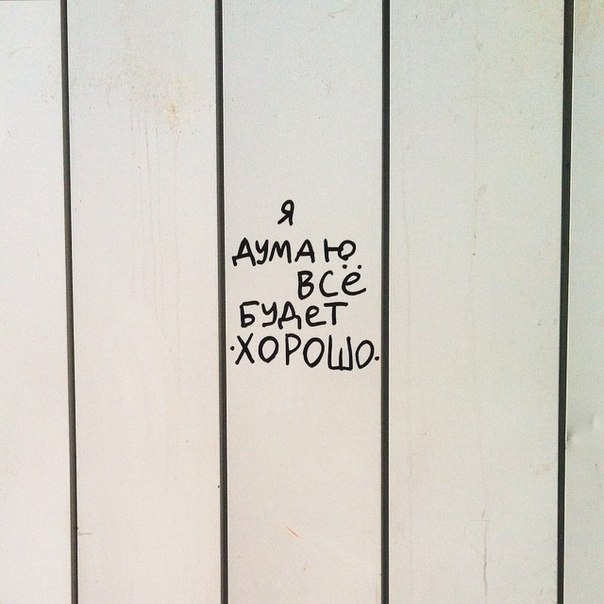 Я
ДУМАЮ
ВСё
БУДеТ
·ХОРОШО·